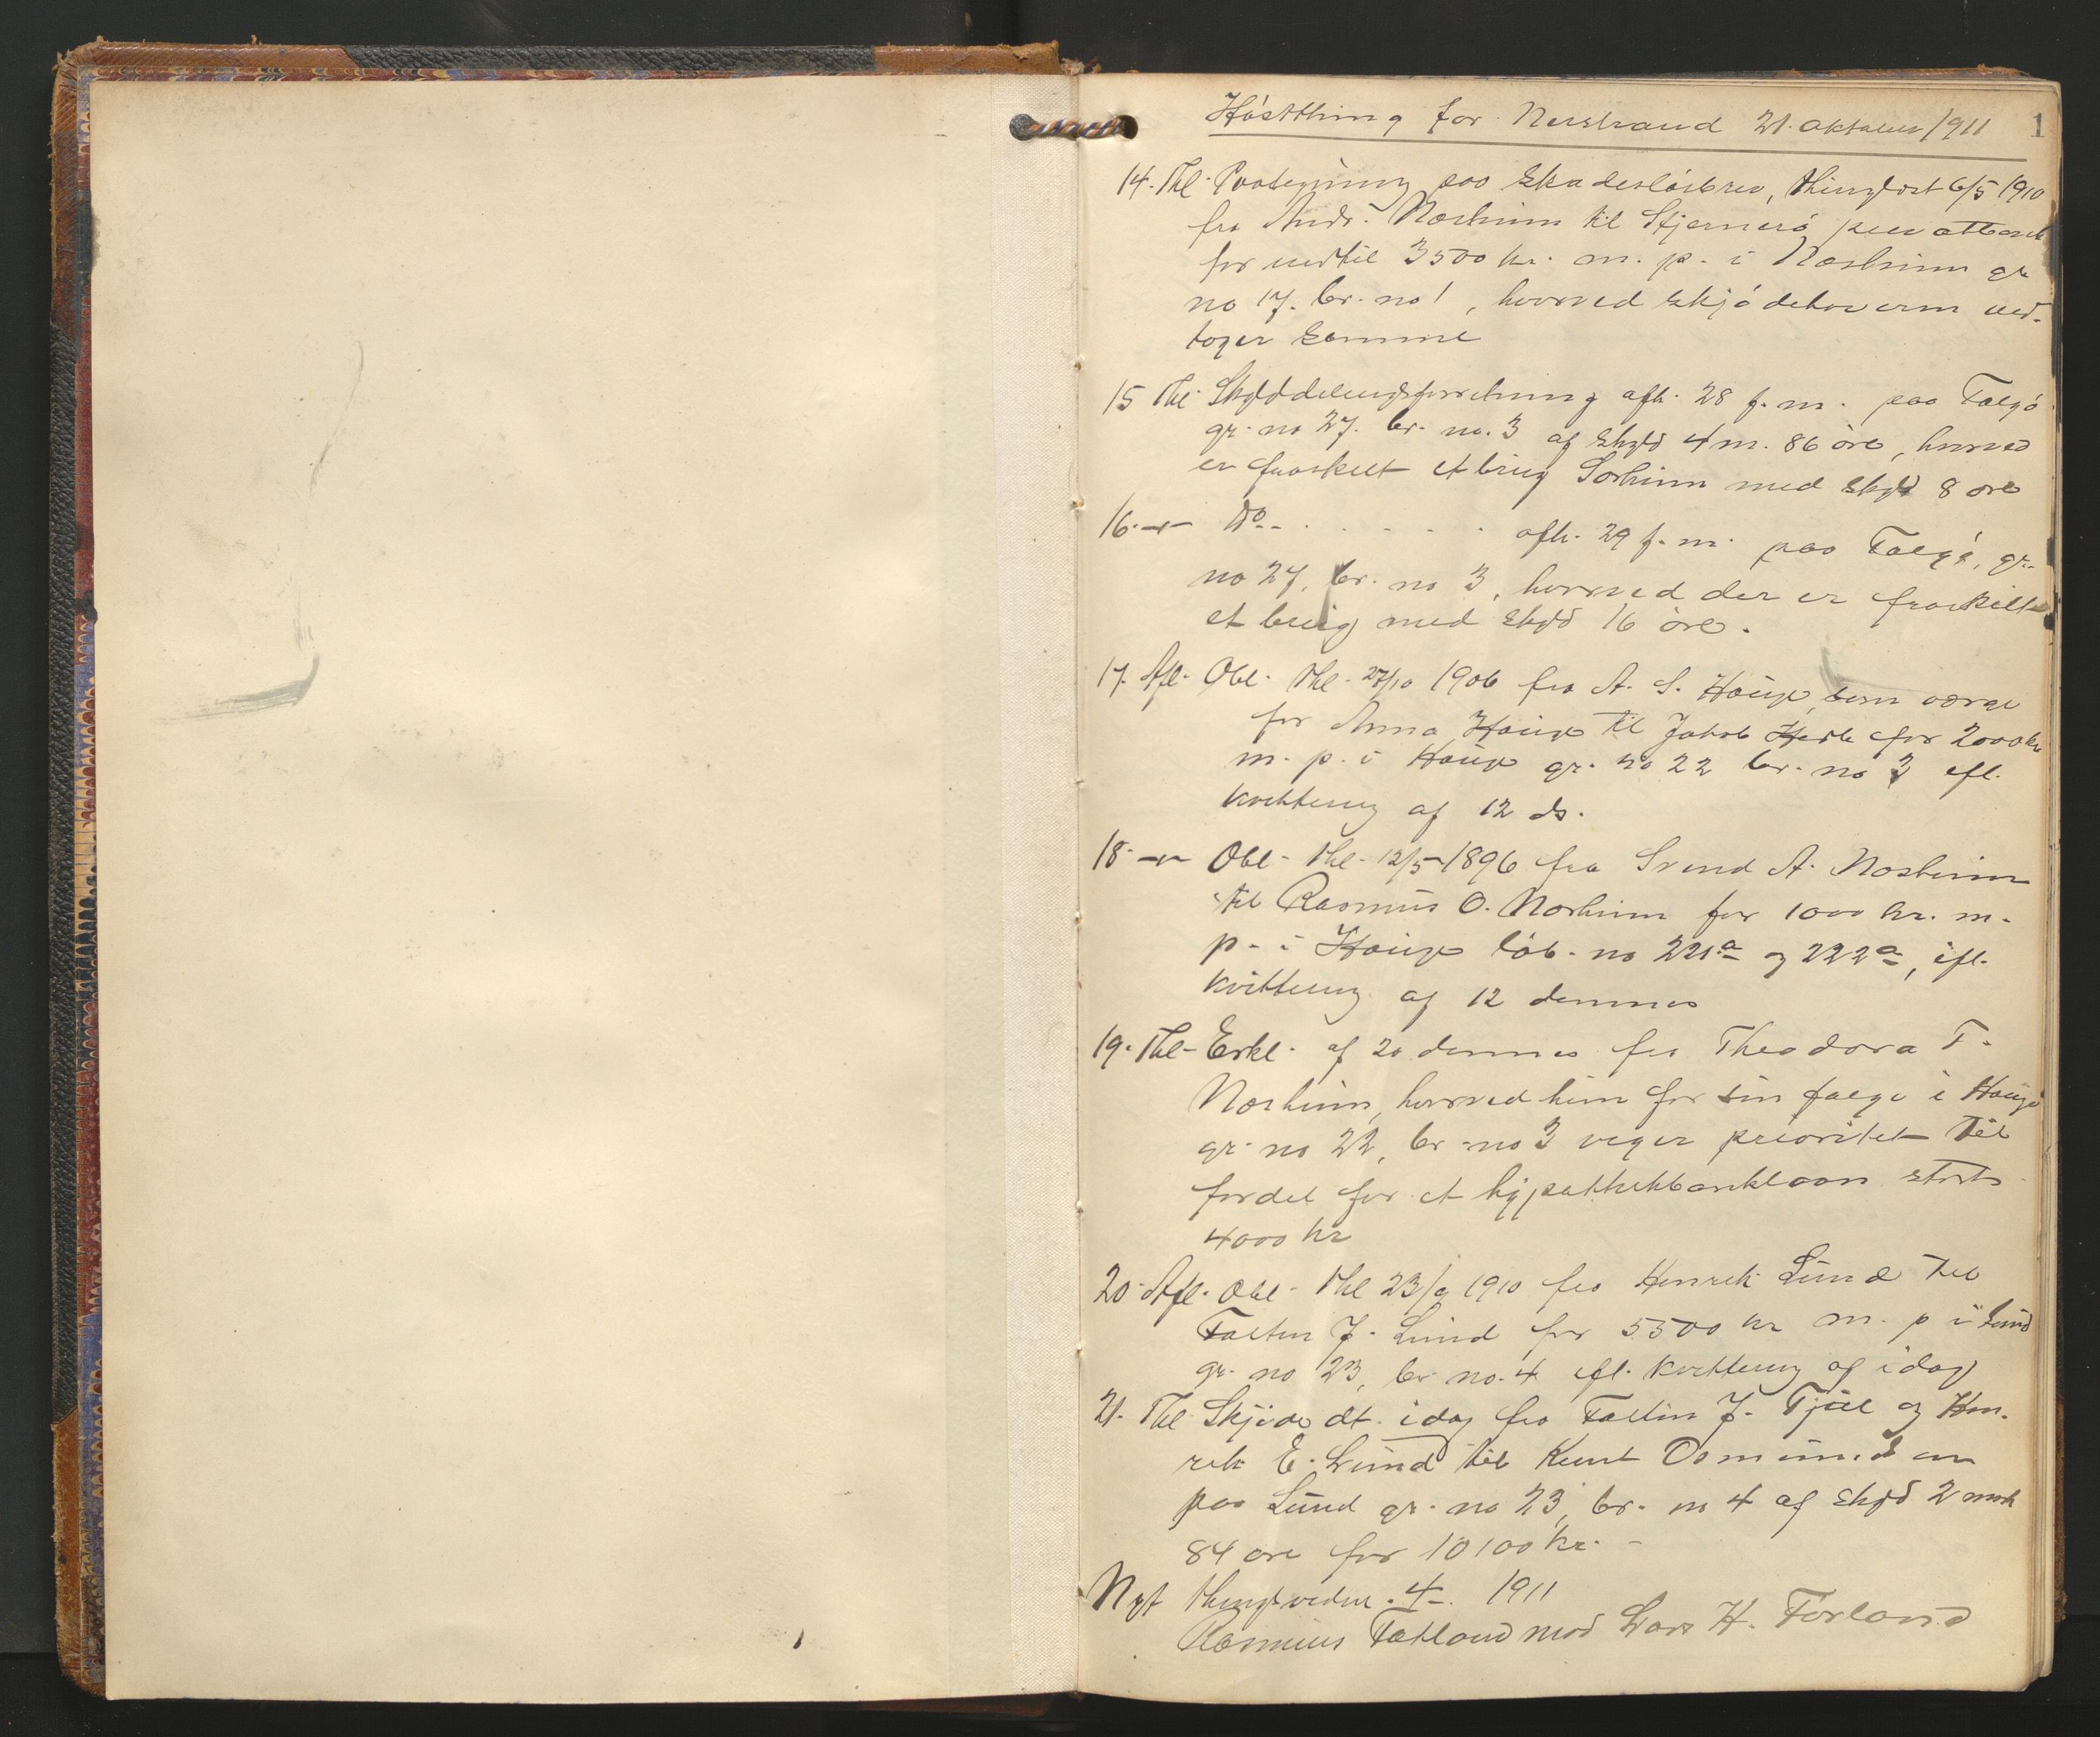 Høstthing for Nerstrand 21. oktober 1911
1
14. Thl. Paategning paa Skadesløsbrev, thinglæst 6/5 1910
fra Andr. Nærheim til Stjernerø
for indtil 3500 kr. m. p. i Nærheim gr.
no 17. br. no 1, hvorved skjødehaveren ved-
tager samme
15 Thl. Skylddelingsforretning afh. 28 f. m. paa Talgø
gr. no 27. br. no. 3 af skyld 4 m. 86 øre, hvorved
er fraskilt et brug Solheim med skyld 8 øre
16. -"- Do - . . . . . afh. 29 f. m. paa Talgø, gr.
no 27, br. no 3, hvorved der er fraskilt
et brug med skyld 16 øre.
17. Afl. Obl. thl. 27/10 1906 fra A. S. Hauge, som værge
for Anna Hauge til Jakob for 2000 kr
m. p. i Hauge gr. no 22 br. no 3 ifl.
kvittering af 12 ds.
18 -"- Obl. thl. 12/5 1896 fra Svend A. Nærheim
til Rasmus O. Nærheim for 1000 kr. m.
p. i Hauge løb. no 221a og 222a, ifl.
kvittering af 12 dennes
19. Thl. Erkl. af 20 dennes fra Theodora T.
Nærheim, hvorved hun for sin følge i Hauge
gr. no 22, br. no 3 viger prioritet til
fordel for et hypothekbanklaan stort
4000 kr
20. Afl. Obl. thl 23/9 1910 fra Henrik Lund til
Faltin J. Lund for 5500 kr m. p i Lund
gr. no 23, br. no. 4 ifl. kvittering af idag
21. Thl. Skjøde dt. idag fra Faltin J. Tjul og Hen-
rik E. Lund til Knut Osmundsen
paa Lund gr. no 23, br. no 4 af skyld 2 mark
84 øre for 10100 kr. -
Nyt thingsvidne. 4 -. 1911
Rasmus Fatland mod Lars H. Førland